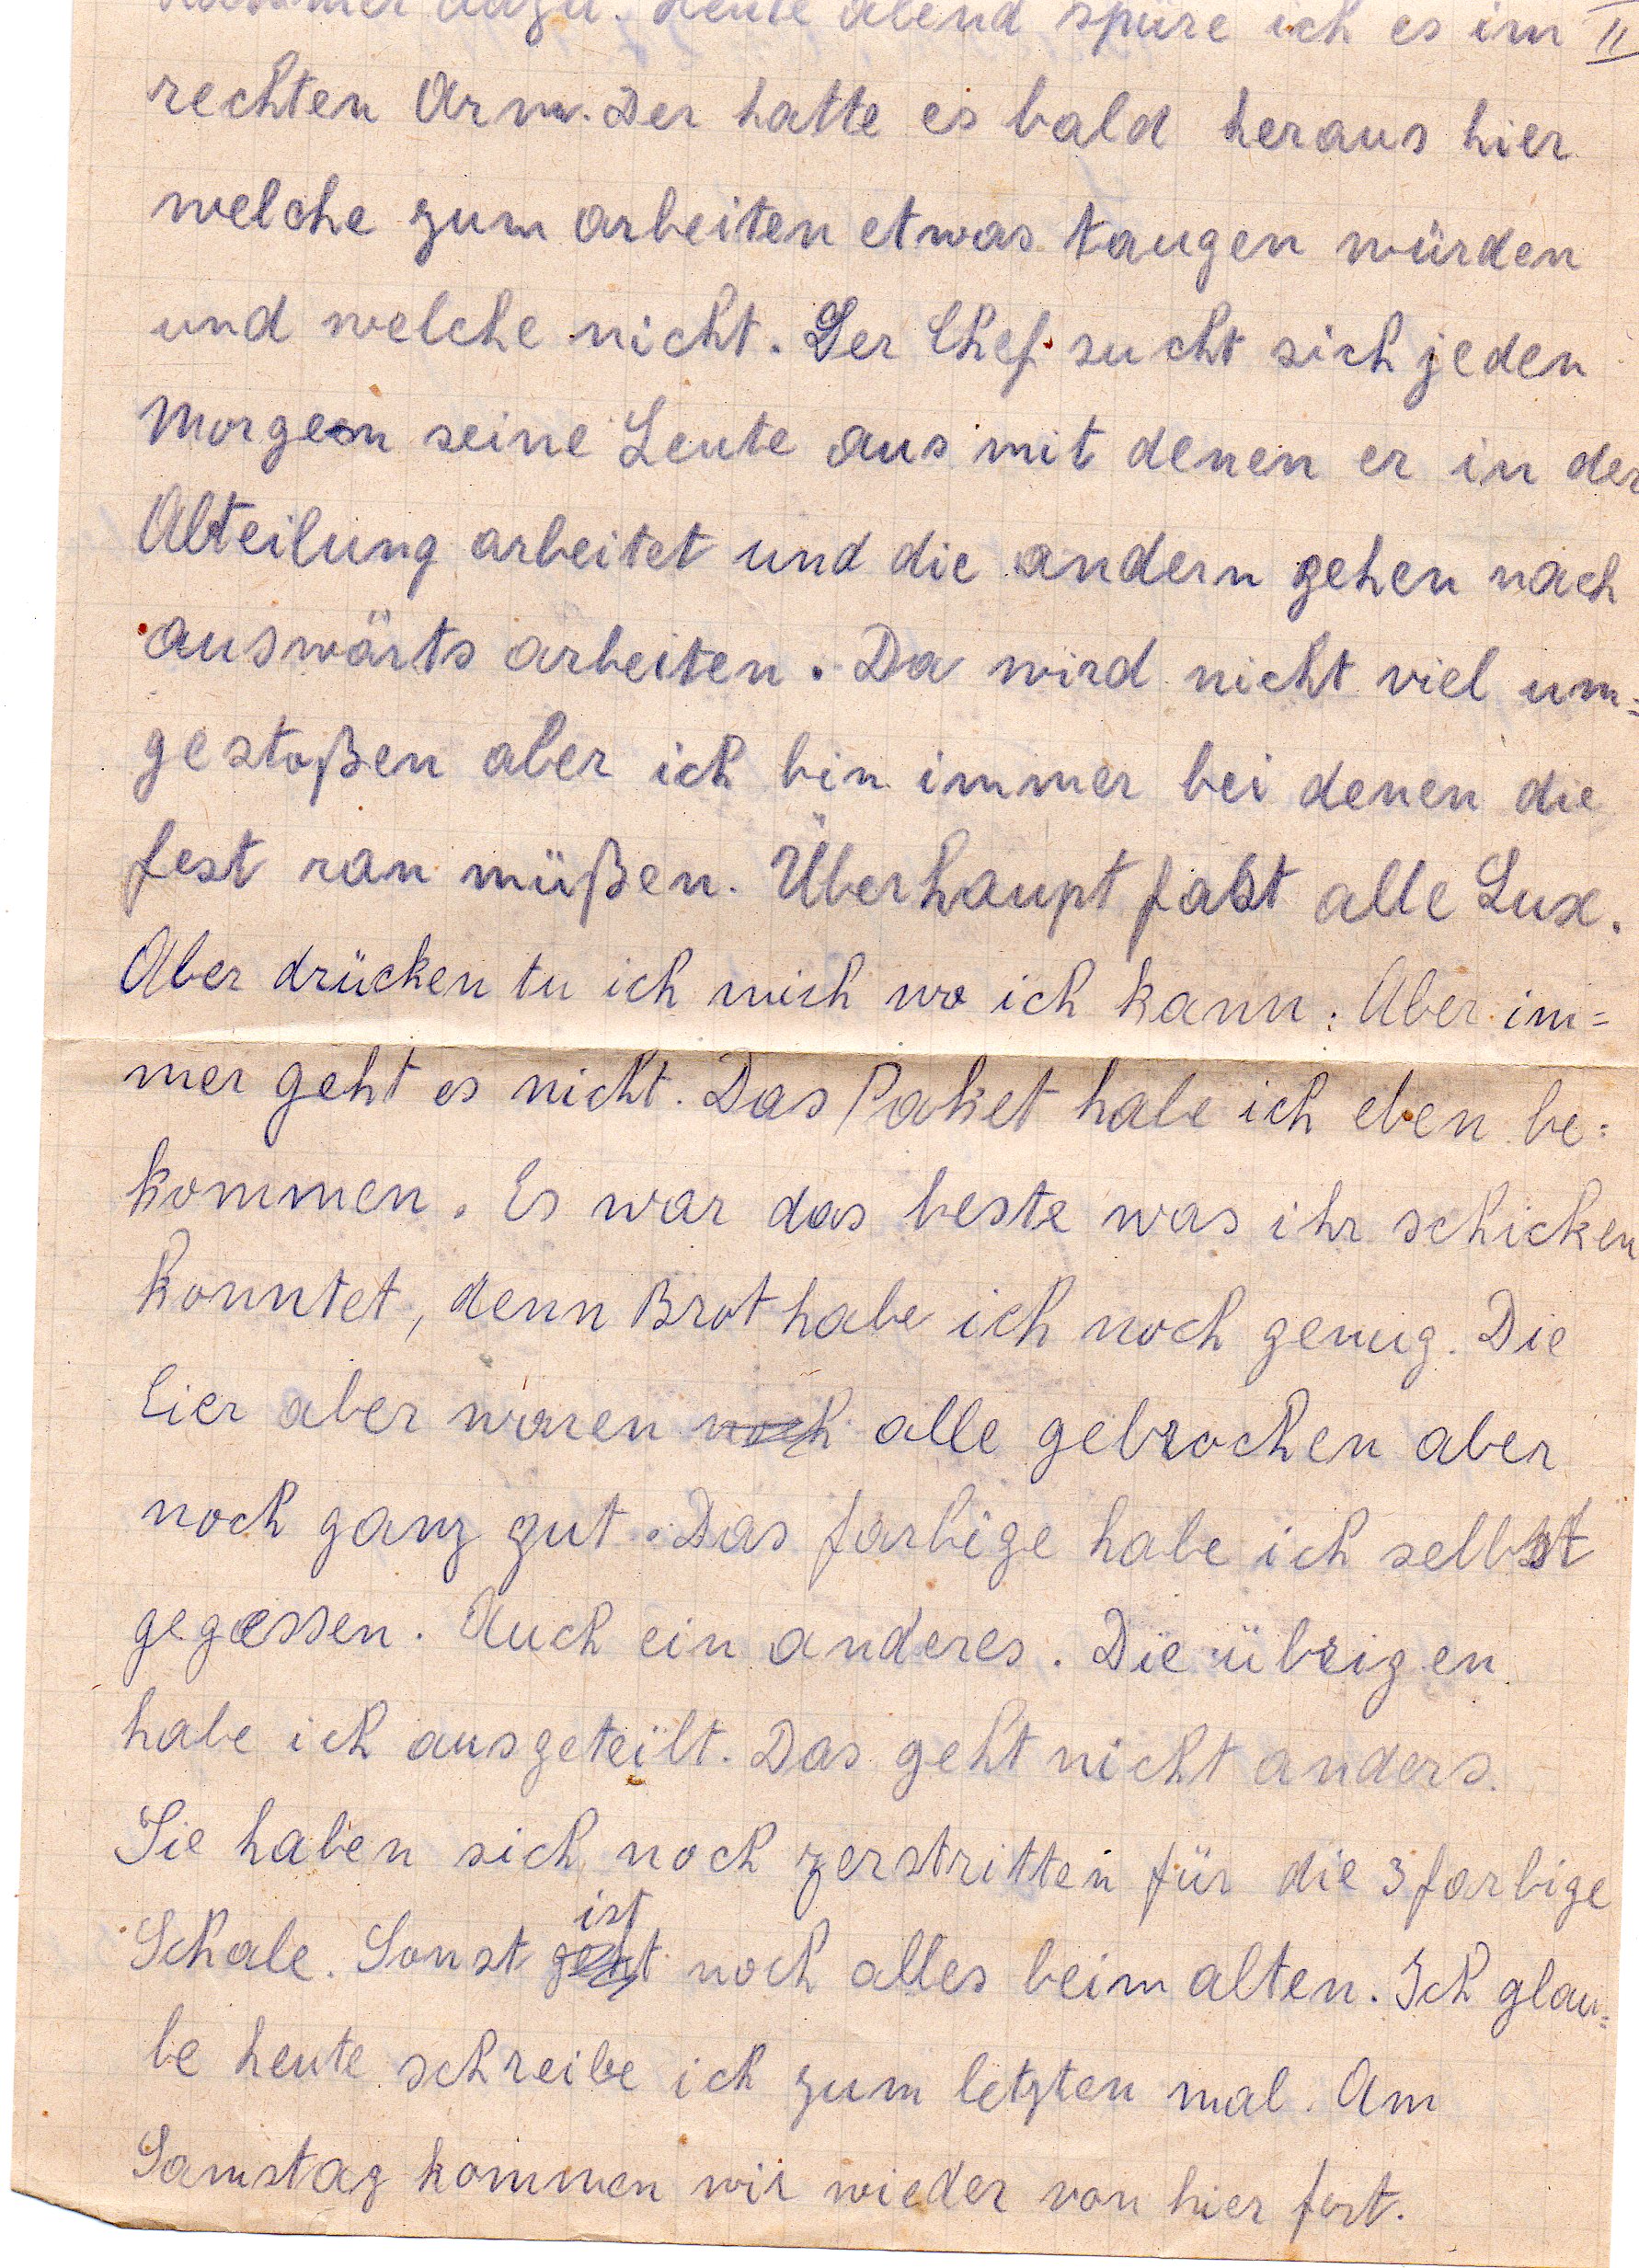 dazu. Heute abend spüre ich es im II
rechten Arm. Der hatte es bald heraus hier
welche zum arbeiten etwas taugen würden
und welche nicht. Der Chef sucht sich jeden
Morgen seine Leute aus mit denen er in der
Abteilung arbeitet und die andern gehen nach
auswärts arbeiten. Da wird nicht viel um=
gestoßen aber ich bin immer bei denen die
fest ran müßen. Überhaupt fast alle Lux.
Aber drücken tu ich mich wo ich kann. Aber im=
mer geht es nicht. Das Paket habe ich eben be=
kommen. Es war das beste was ihr schicken
konntet, denn Brot habe ich noch genug. Die
Eier aber waren noch alle gebrochen aber
noch ganz gut. Das farbige habe ich selbst
gegessen. Auch ein anderes. Die übrigen
habe ich ausgeteilt. Das geht nicht anders.
Sie haben sich noch zerstritten für die 3 farbige
ist
Schale. Sonst geht noch alles beim alten. Ich glau=
be heute schreibe ich zum letzten mal. Am
Samstag kommen wir wieder von hier fort.